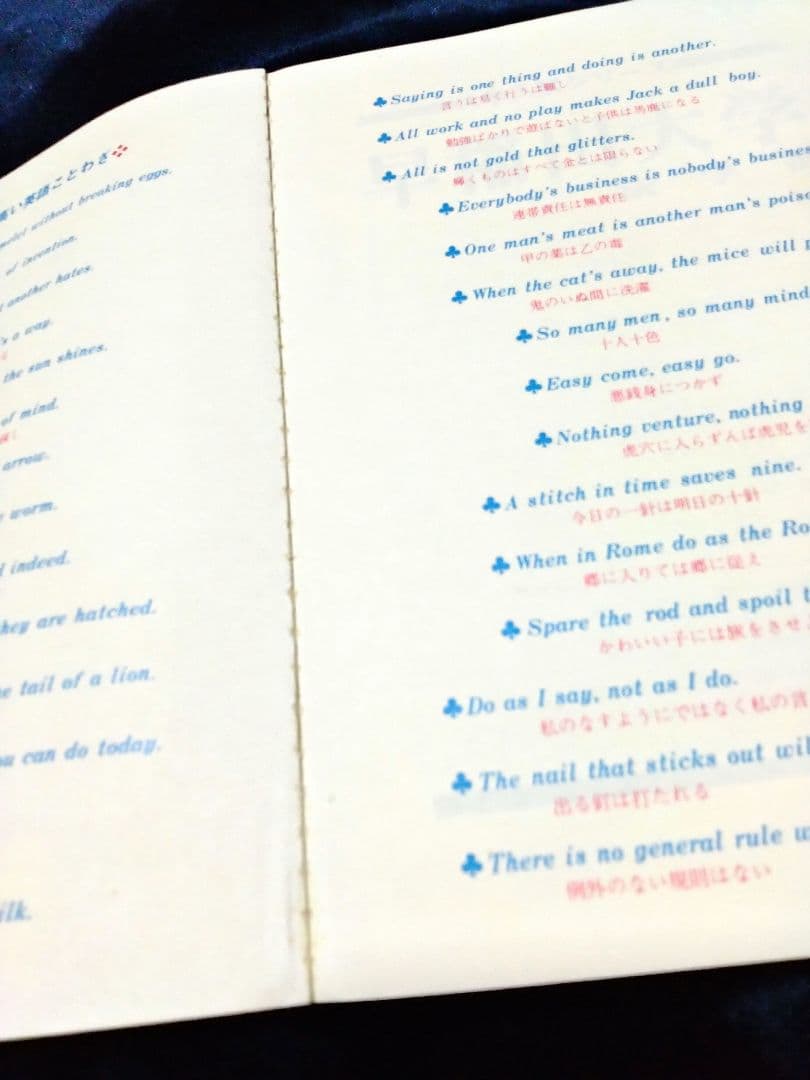 い英語ことわざ
without breaking eggs.
of invention.
another hates.
's a way.
the sun shines.
of mind.
arrow.
worm.
indeed.
they are hatched.
tail of a lion.
can do today.
♣Saying is one thing and doing is another.
言うは易く行うは難し
♣All work and no play makes Jack a dull boy.
勉強ばかりで遊ばないと子供は馬鹿になる
♣All is not gold that glitters.
輝くものはすべて金とは限らない
♣Everybody's business is nobody's busines
連帯責任は無責任
♣One man's meat is another man's poiso
甲の薬は乙の毒
♣When the cat's away, the mice will
鬼のいぬ間に洗濯
♣So many men, so many mind
十人十色
♣Easy come, easy go.
悪銭身につかず
♣Nothing venture, nothing
虎穴に入らずんば虎児を
♣A stitch in time saves nine.
今日の一針は明日の十針
♣When in Rome do as the Ro
郷に入りては郷に従え
♣Spare the rod and spoil t
かわいい子には旅をさせ
♣Do as I say, not as I do.
私のなすようにではなく私の言
♣The nail that sticks out wil
出る釘は打たれる
♣There is no general rule w
例外のない規則はない